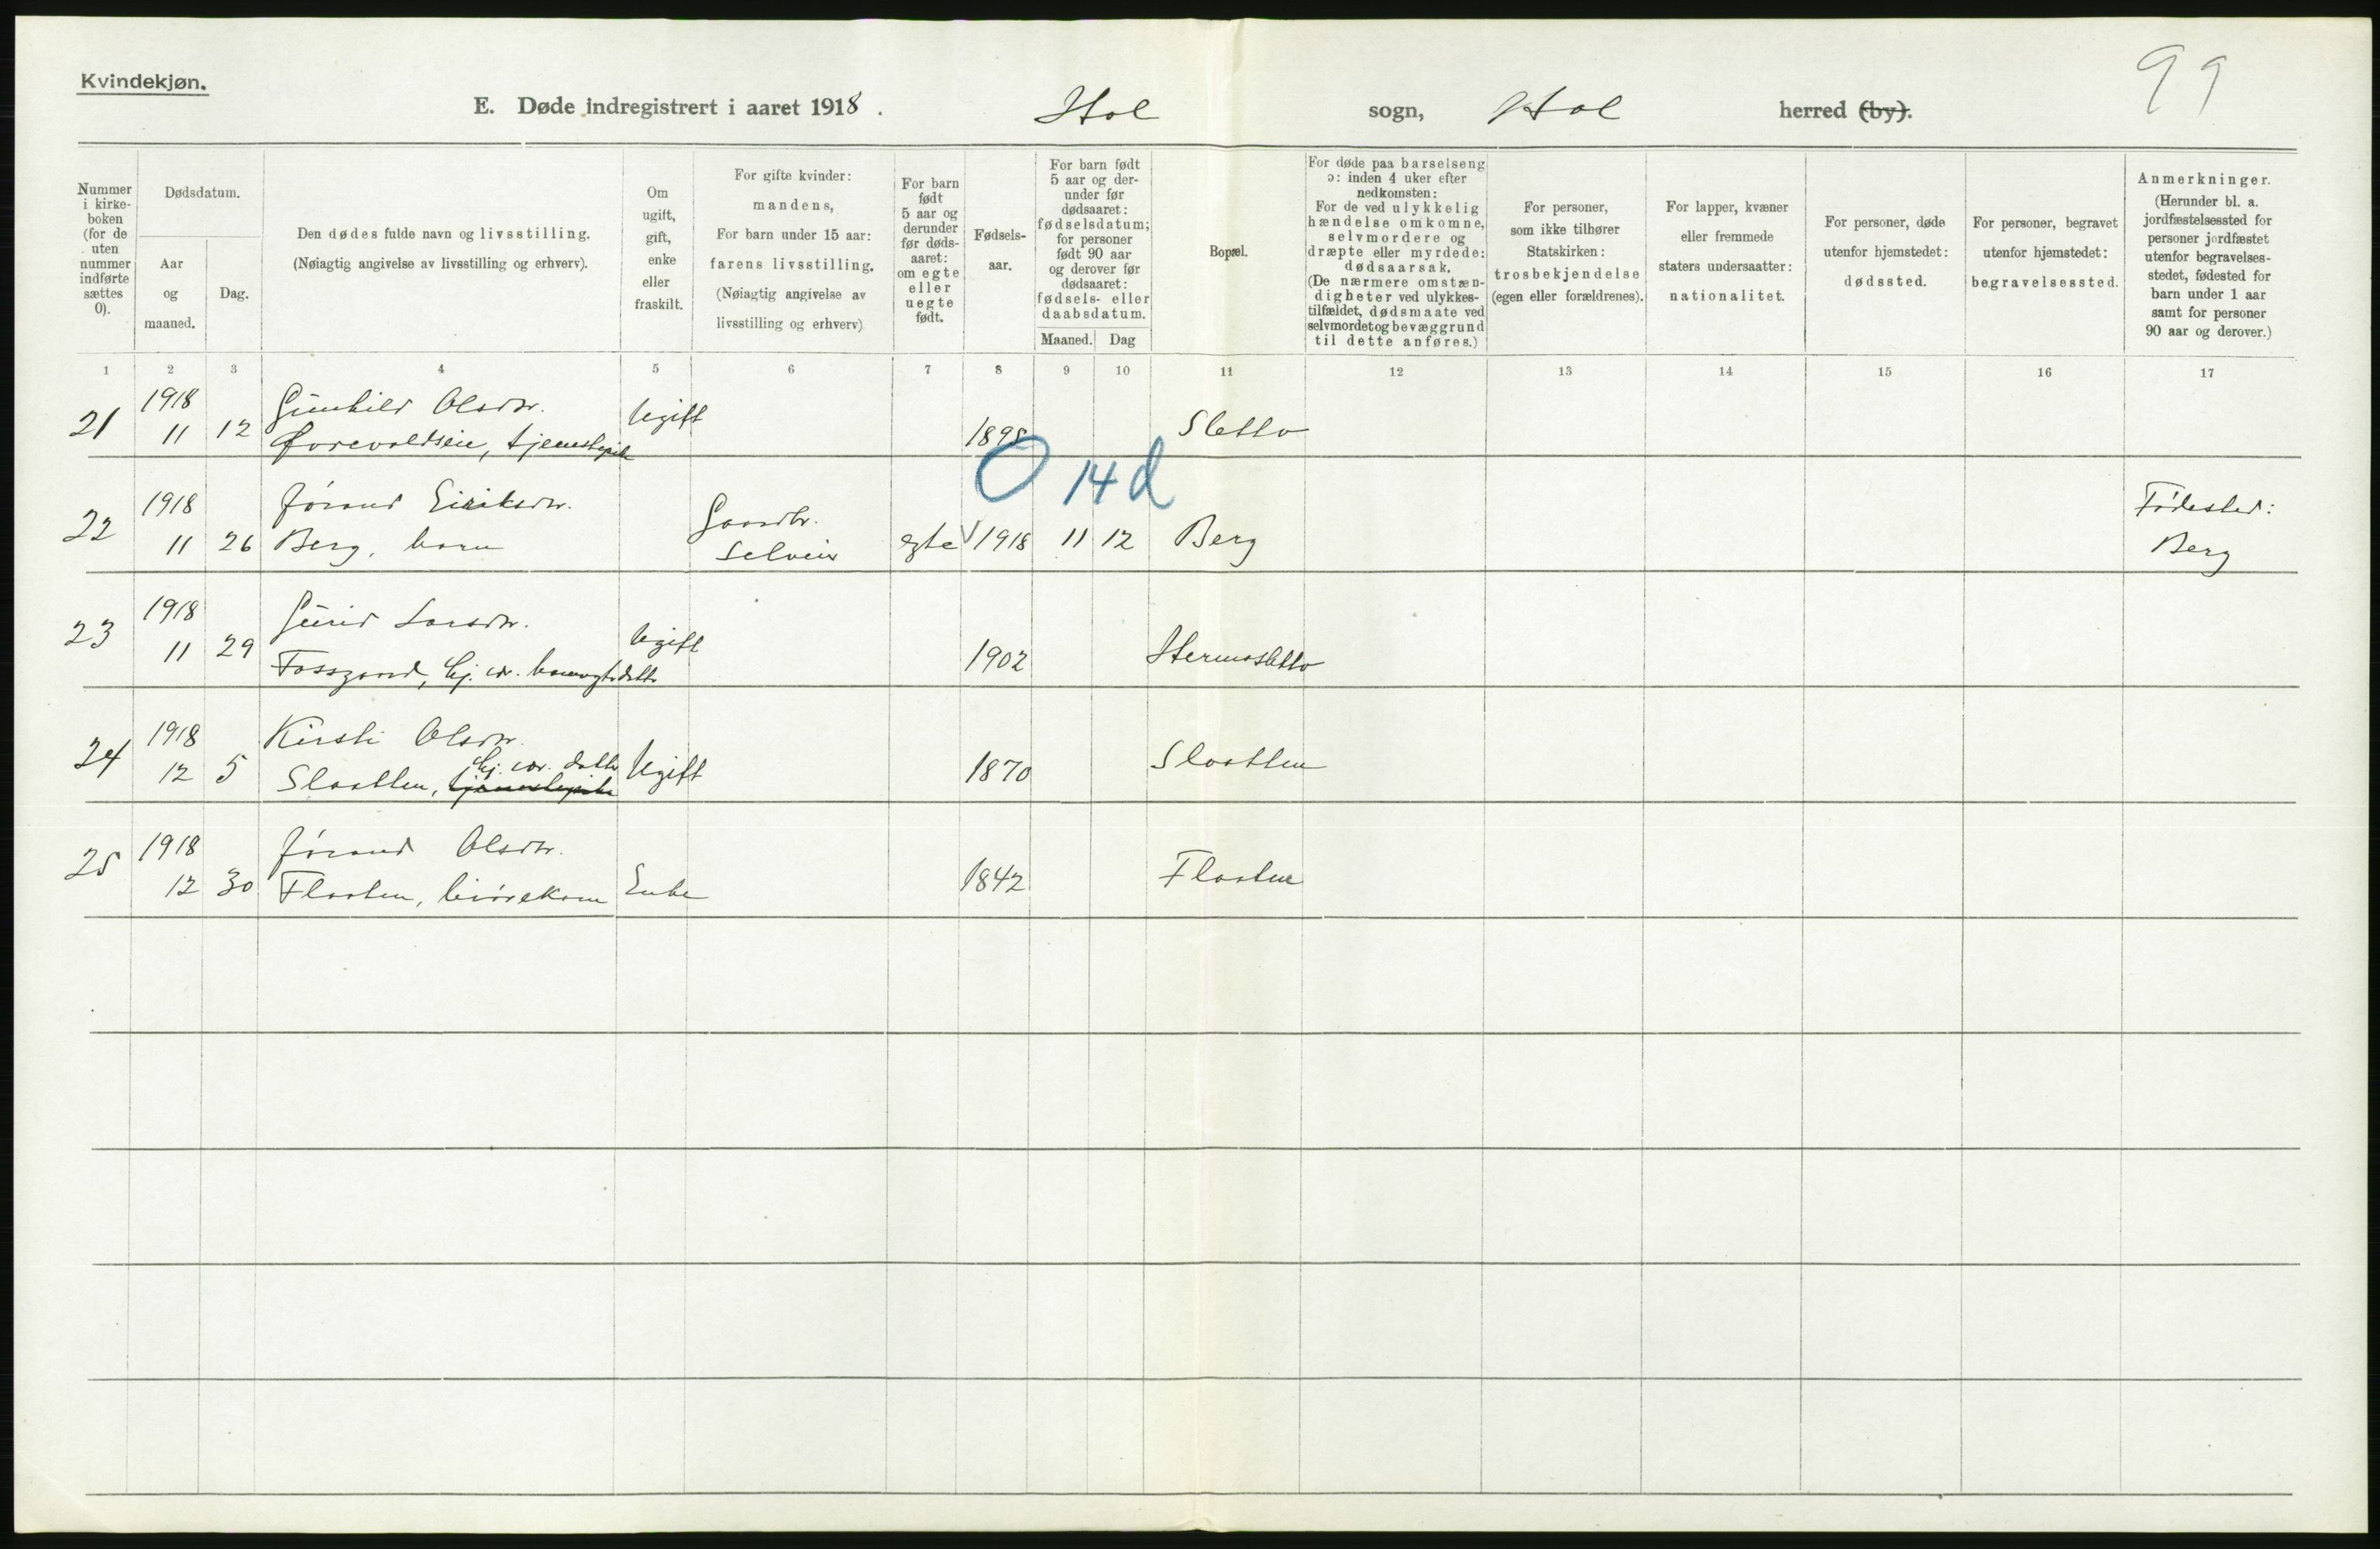 Kvindekjøn.
99
E. Døde indregistrert i aaret 1918. Hol sogn, Hol herred (by).
Nummer i kirke-boken (for de uten nummer indførte sættes 0).
Dødsdatum.
Aar og maaned.
Dag.
Den dødes fulde navn og livsstilling.
(Nøiagtig angivelse av livsstilling og erhverv).
Om ugift, gift, enke eller fraskilt.
For gifte kvinder: mandens,
For barn under 15 aar: farens livsstilling.
(Nøiagtig angivelse av livsstilling og erhverv)
For barn født 5 aar og derunder før døds-aaret: om egte eller uegte født.
Fødsels-aar.
For barn født 5 aar og der-under før dødsaaret: fødselsdatum; for personer født 90 aar og derover før dødsaaret: fødsels- eller daabsdatum.
Maaned. Dag
Bopæl.
For døde paa barselseng ɔ: inden 4 uker efter nedkomsten:
For de ved ulykkelig hændelse omkomne, selvmordere og dræpte eller myrdede: dødsaarsak.
(De nærmere omstæn-digheter ved ulykkes-tilfældet, dødsmaate ved selvmordet og bevæggrund til dette anføres.)
For personer, som ikke tilhører Statskirken: trosbekjendelse (egen eller forældrenes).
For lapper, kvæner eller fremmede staters undersaatter: nationalitet.
For personer, døde utenfor hjemstedet: dødssted.
For personer, begravet utenfor hjemstedet: begravelsessted.
Anmerkninger.
(Herunder bl. a. jordfæstelsessted for personer jordfæstet utenfor begravelses-stedet, fødested for barn under 1 aar samt for personer 90 aar og derover.)
1 2 3 4 5 6 7 8 9 10 11 12 13 14 15 16 17
1918 Gunhild Olsdtr. Ugift
21 11 12 tjenestepike 1895 Sletto
0 14 d
1918 Jørand Eiriksdtr. Gaardbr. Fødested:
22 11 26 Berg, barn selveier egte 1918 11 12 Berg Berg
1918 Gurid Larsdtr. Ugift
23 11 29 Fossgard, hj. vr. 1902 Hermosletto
1918 Kirsti Olsdtr. hj. vr. datter
24 12 5 Slaatten, tjenestepike Ugift 1870 Slaatten
1918 Jørand Olsdtr.
25 12 30 Flaaten, livørekone Enke 1842 Flaaten